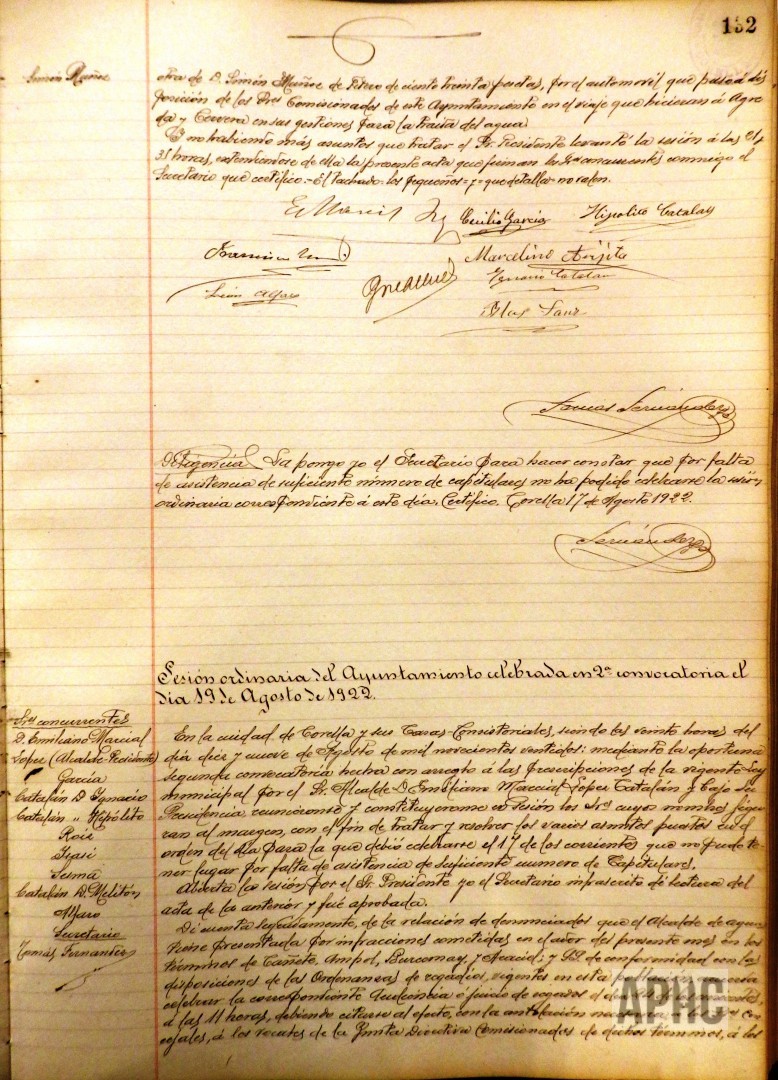 132
Simón Muñoz
otra de D. Simón Muñoz de Fitero de ciento treinta pesetas, por el automovil que puso á dis
posición de los Sres Comisionados de este Ayuntamiento en el viaje que hicieron á Agre
da y Cervera en sus gestiones para la traida del agua.
Y no habiendo más asuntos que tratar el Sr. Presidente levantó la sesión á las 21 y
35 horas, extendiendose de ella la presente acta que firman los Sres concurrentes conmigo el
Secretario que certifico.- El tachado- los pequeños- y- que detalla- no valen.
Cecilio García Hipólito Catalán
Francisco
Marcelino Arijita
Ignacio Catalan
León Alfaro
Blas Sanz
Tomás Fernández
Diligencia. La pongo yo el Secretario para hacer constar que por falta
de asistencia de suficiente número de capitulares no ha podido celebrarse la sesión
ordinaria correspondiente á este día. Certifico. Corella 17 de Agosto 1922.
Fernández
Sesión ordinaria del Ayuntamiento celebrada en 2ª convocatoria el
día 19 de Agosto de 1922.
Sres concurrentes
D. Emiliano Marcial
Lopez (Alcalde-Presidente)
García
Catalán D. Ignacio
Catalán " Hipólito
Sesma
Catalán D. Melitón
Alfaro
Secretario
Tomás Fernandez
En la ciudad de Corella y sus Casas Consistoriales, siendo las veinte horas del
día diez y nueve de Agosto de mil novecientos veintidos: mediante la oportuna
segunda convocatoria hecha con arreglo á las prescripciones de la vigente Ley
municipal por el Sr. Alcalde D. Emiliano Marcial Lopez Catalán y bajo su
Presidencia reunieronse y constituyeronse en sesión los Sres cuyos nombres figu
ran al margen, con el fin de tratar y resolver los varios asuntos puestos en el
orden del día para la que debió celebrarse el 17 de los corrientes que no pudo te
ner lugar por falta de asistencia de suficiente numero de Capitulares.
Abierta la sesión por el Sr. Presidente yo el Secretario infrascrito dí lectura del
acta de la anterior y fué aprobada.
Dí cuenta seguidamente, de la relación de denunciados que el Alcalde de aguas
tiene presentada por infracciones cometidas en el ador del presente mes en los
términos de Cañete, Ampol, Burcemay, y Aracid; y SS. de conformidad con las
disposiciones de las Ordenanzas de regadíos, vigentes en esta
celebrar la correspondiente Audiencia ó juicio de regadío el
á las 11 horas, debiendo citarse al efecto, con la antelación
cejales, á los vocales de la Junta Directiva Comisionados de dichos términos, á los
APHC